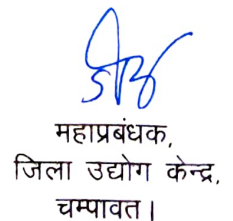 महाप्रबंधक,
जिला उद्योग केन्द्र,
चम्पावत।